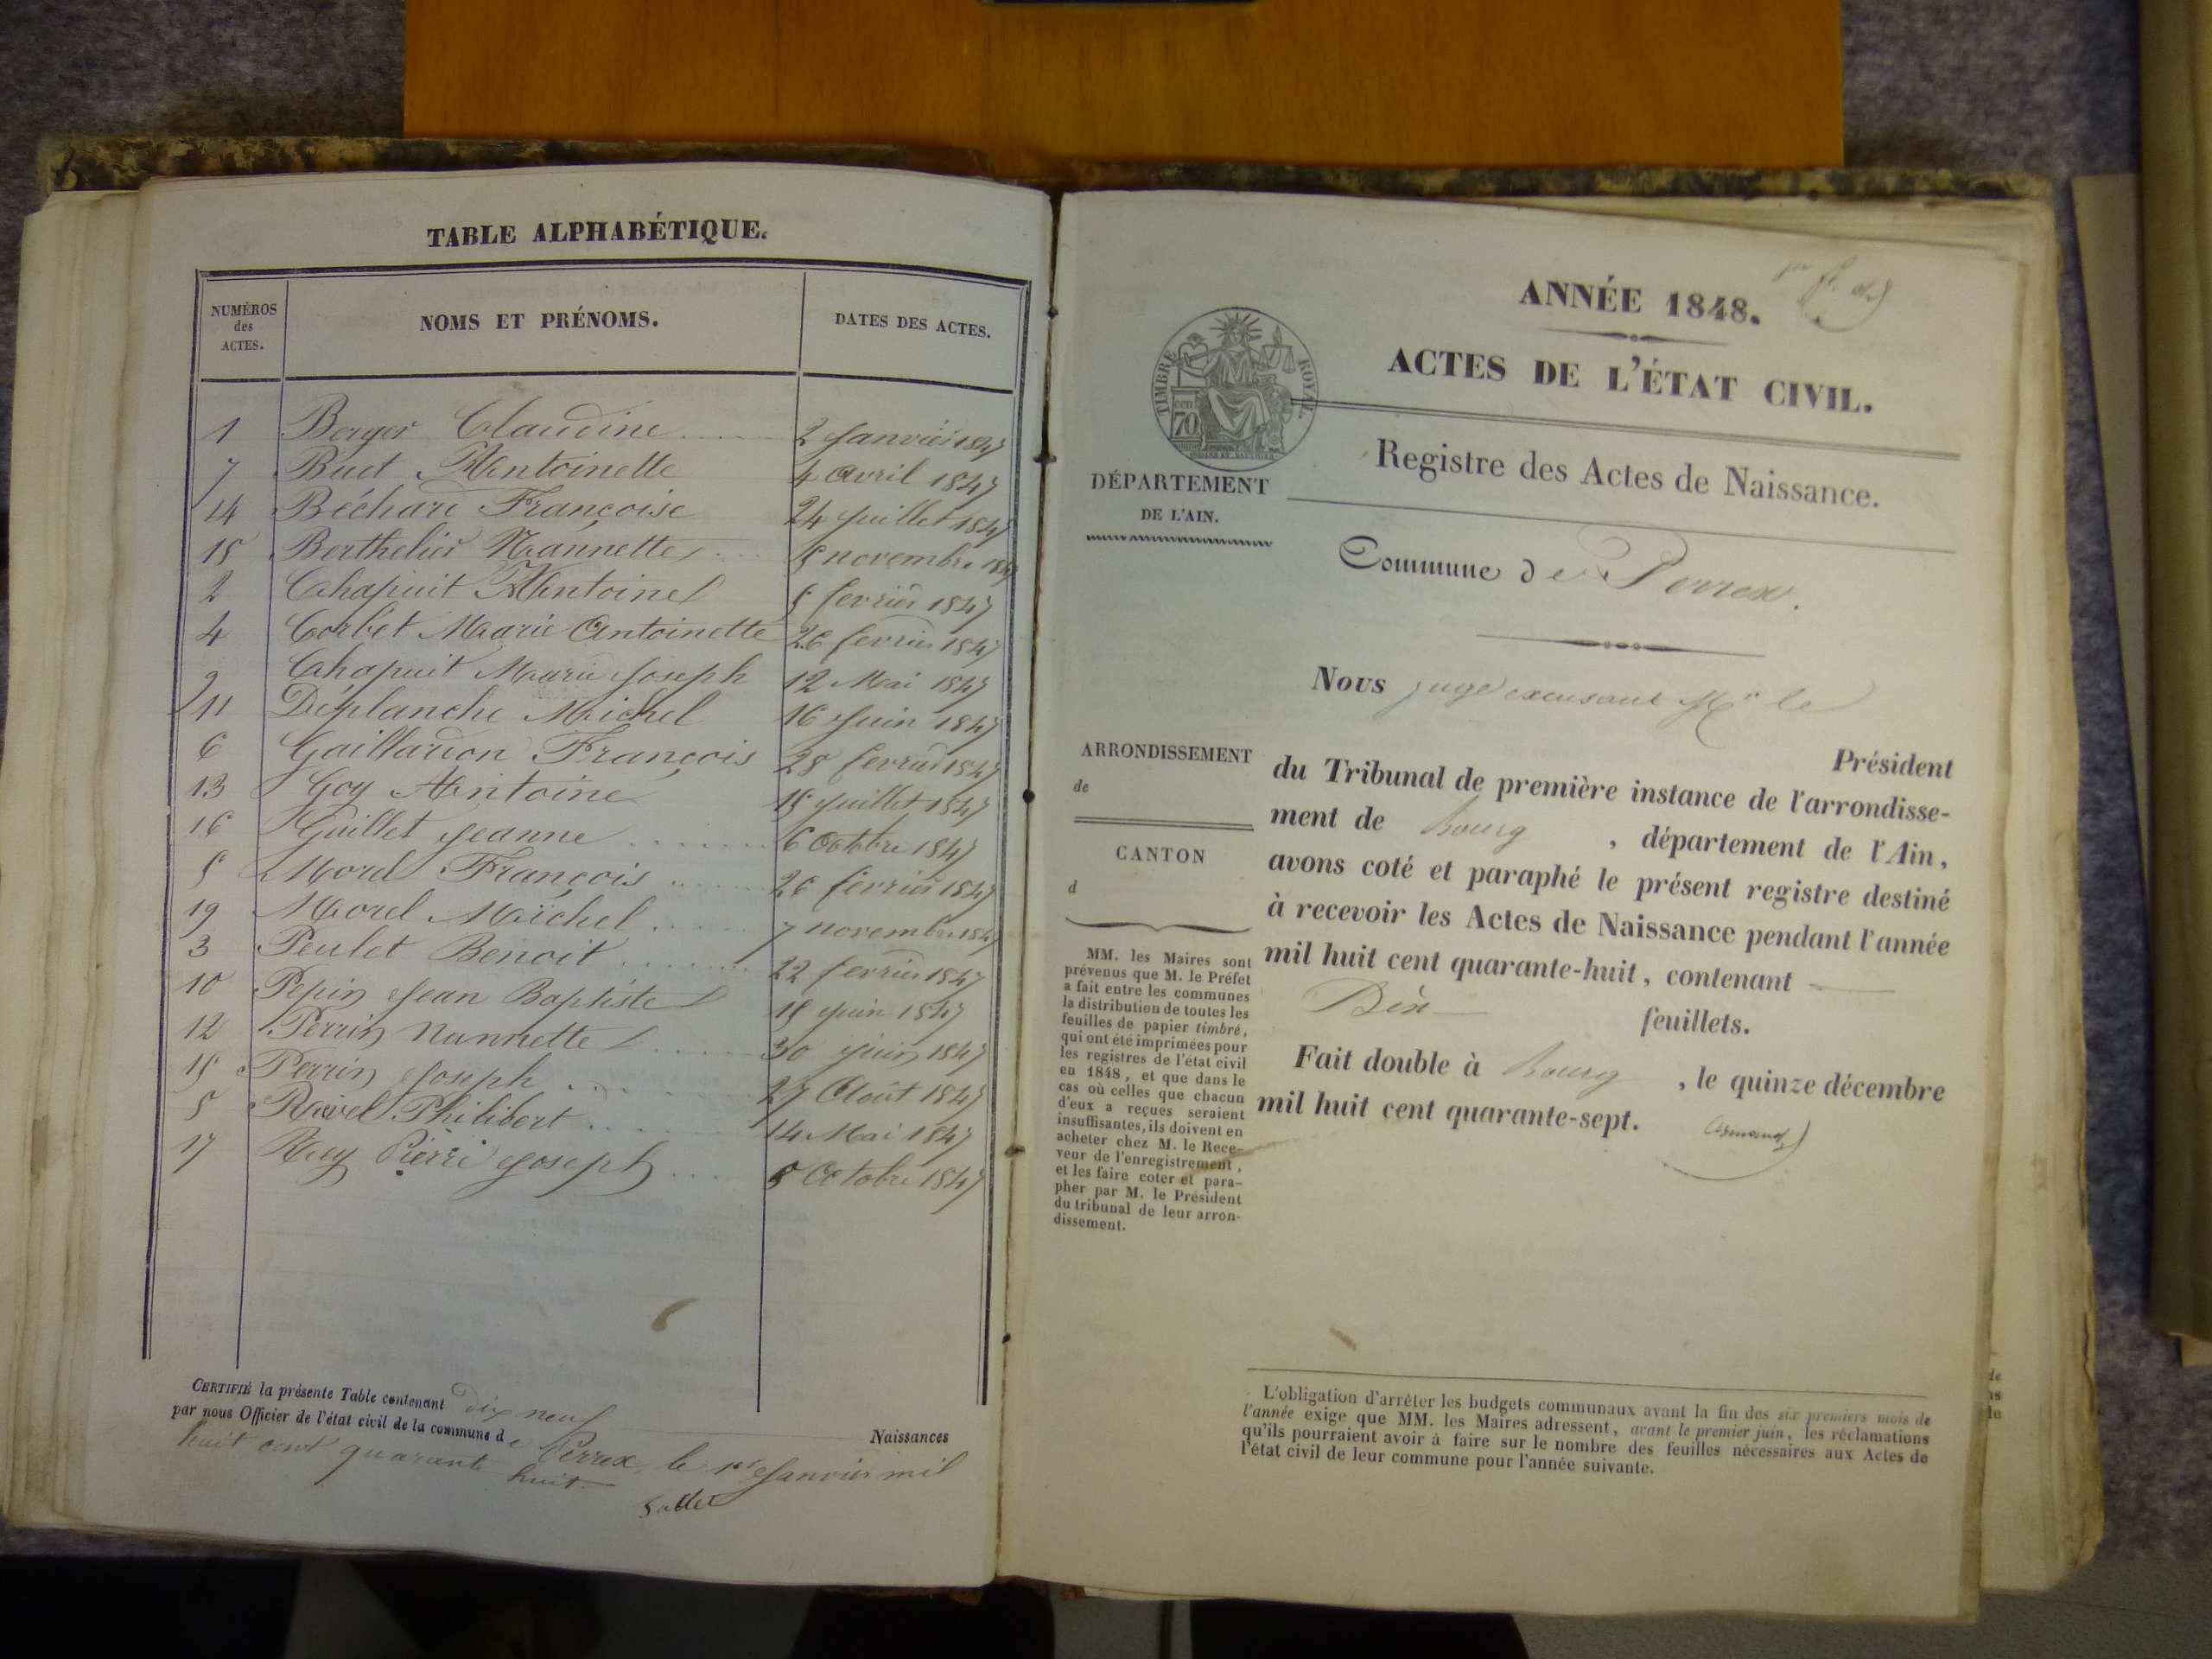 TABLE ALPHABÉTIQUE.
NUMÉROS des ACTES. NOMS ET PRÉNOMS. DATES DES ACTES.
1 Berger Claudine 2 Janvier 1847
7 Buet Antoinette 4 avril 1847
14 Béchard Françoise 24 juillet 1847
18 Berthelier Nannette 5 novembre 1847
2 Chapuit Antoine 5 fevrier 1847
4 Corbet Marie Antoinette 26 fevrier 1847
9 Chapuit Marie Joseph 12 Mai 1847
11 Déplanche Michel 16 Juin 1847
6 Gaillardon François 28 fevrier 1847
13 Goy Antoine 18 juillet 1847
16 Guillet Jeanne 6 Octobre 1847
5 Morel François 26 fevrier 1847
19 Morel Michel 7 novembre 1847
3 Peulet Benoit 22 fevrier 1847
10 Pepin Jean Baptiste 15 juin 1847
12 Perrin Nannette 30 juin 1847
15 Perrin Joseph 27 Août 1847
8 Ravel Philibert 14 Mai 1847
17 Rey Pierre Joseph 8 Octobre 1847
CERTIFIÉ la présente Table contenant dix neuf Naissances
par nous Officier de l'état civil de la commune de Perrex, le 1er Janvier mil
huit cent quarante huit.
ANNÉE 1848.
ACTES DE L'ÉTAT CIVIL.
TIMBRE ROYAL.
cen 70
Registre des Actes de Naissance.
DÉPARTEMENT
DE L'AIN.
Commune de Perrex.
Nous juge excusant Mr le
Président
du Tribunal de première instance de l'arrondisse-
ment de Bourg, département de l'Ain,
avons coté et paraphé le présent registre destiné
à recevoir les Actes de Naissance pendant l'année
mil huit cent quarante-huit, contenant
Dix feuillets.
Fait double à Bourg, le quinze décembre
mil huit cent quarante-sept.
ARRONDISSEMENT
de
CANTON
d
MM. les Maires sont
prévenus que M. le Préfet
a fait entre les communes
la distribution de toutes les
feuilles de papier timbré,
qui ont été imprimées pour
les registres de l'état civil
en 1848, et que dans le
cas où celles que chacun
d'eux a reçues seraient
insuffisantes, ils doivent en
acheter chez M. le Rece-
veur de l'enregistrement,
et les faire coter et para-
pher par M. le Président
du tribunal de leur arron-
dissement.
L'obligation d'arrêter les budgets communaux avant la fin des six premiers mois de
l'année exige que MM. les Maires adressent, avant le premier juin, les réclamations
qu'ils pourraient avoir à faire sur le nombre des feuilles nécessaires aux Actes de
l'état civil de leur commune pour l'année suivante.